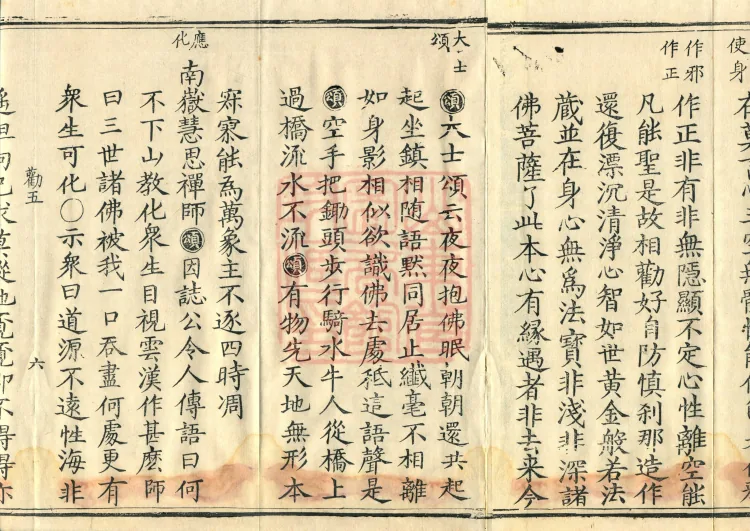 使身
作邪
作正
作正非有非無隱顯不定心性離空能
凡能聖是故相勸好自防慎刹那造作
還復漂沉清淨心智如世黃金般若法
藏並在身心無為法寶非淺非深諸
佛菩薩了此本心有緣遇者非去来今
大士
頌
頌大士頌云夜夜抱佛眠朝朝還共起
起坐鎮相随語默同居止纖毫不相離
如身影相似欲識佛去處秪這語聲是
頌空手把鋤頭歩行騎水牛人從橋上
過橋流水不流頌有物先天地無形本
寂寥能為萬象主不逐四時凋
應
化
南嶽慧思禪師頌因誌公令人傳語曰何
不下山教化衆生目視雲漢作甚麽師
曰三世諸佛被我一口吞盡何處更有
衆生可化〇示衆曰道源不遠性海非
勸五
六